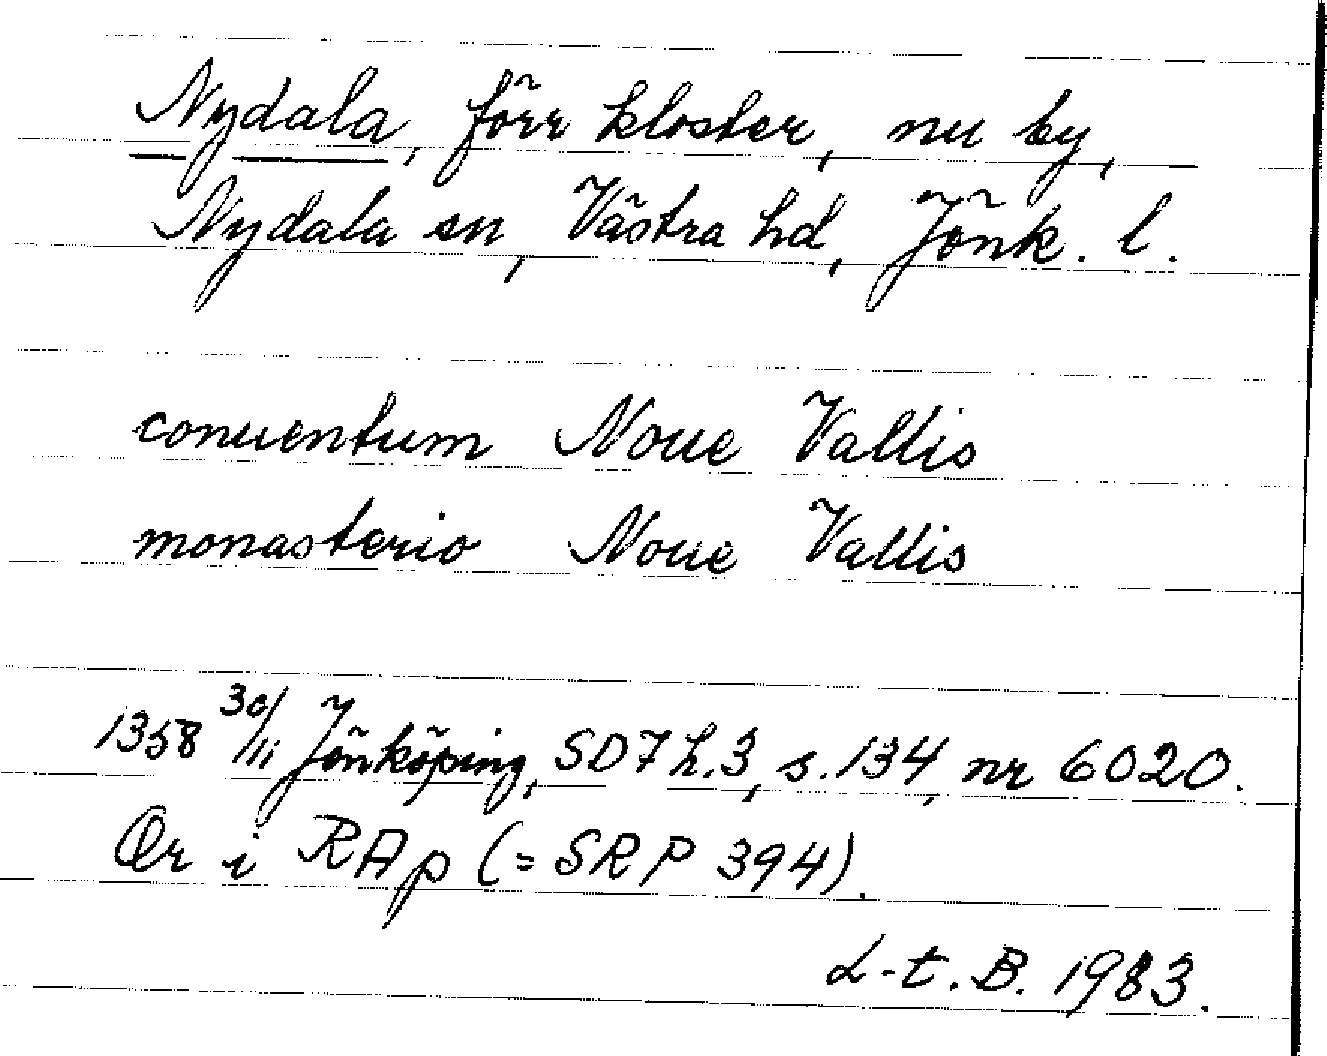 Nydala, förr kloster, nu by,
Nydala sn, Västra hd, Jönk. l.
conuentum Noue Vallis
monasterio Noue Vallis
1358 30/11 Jönköping, SD7 h.3, s.134, nr 6020.
Or i RAp (=SRP 394).
L-t. B. 1983.